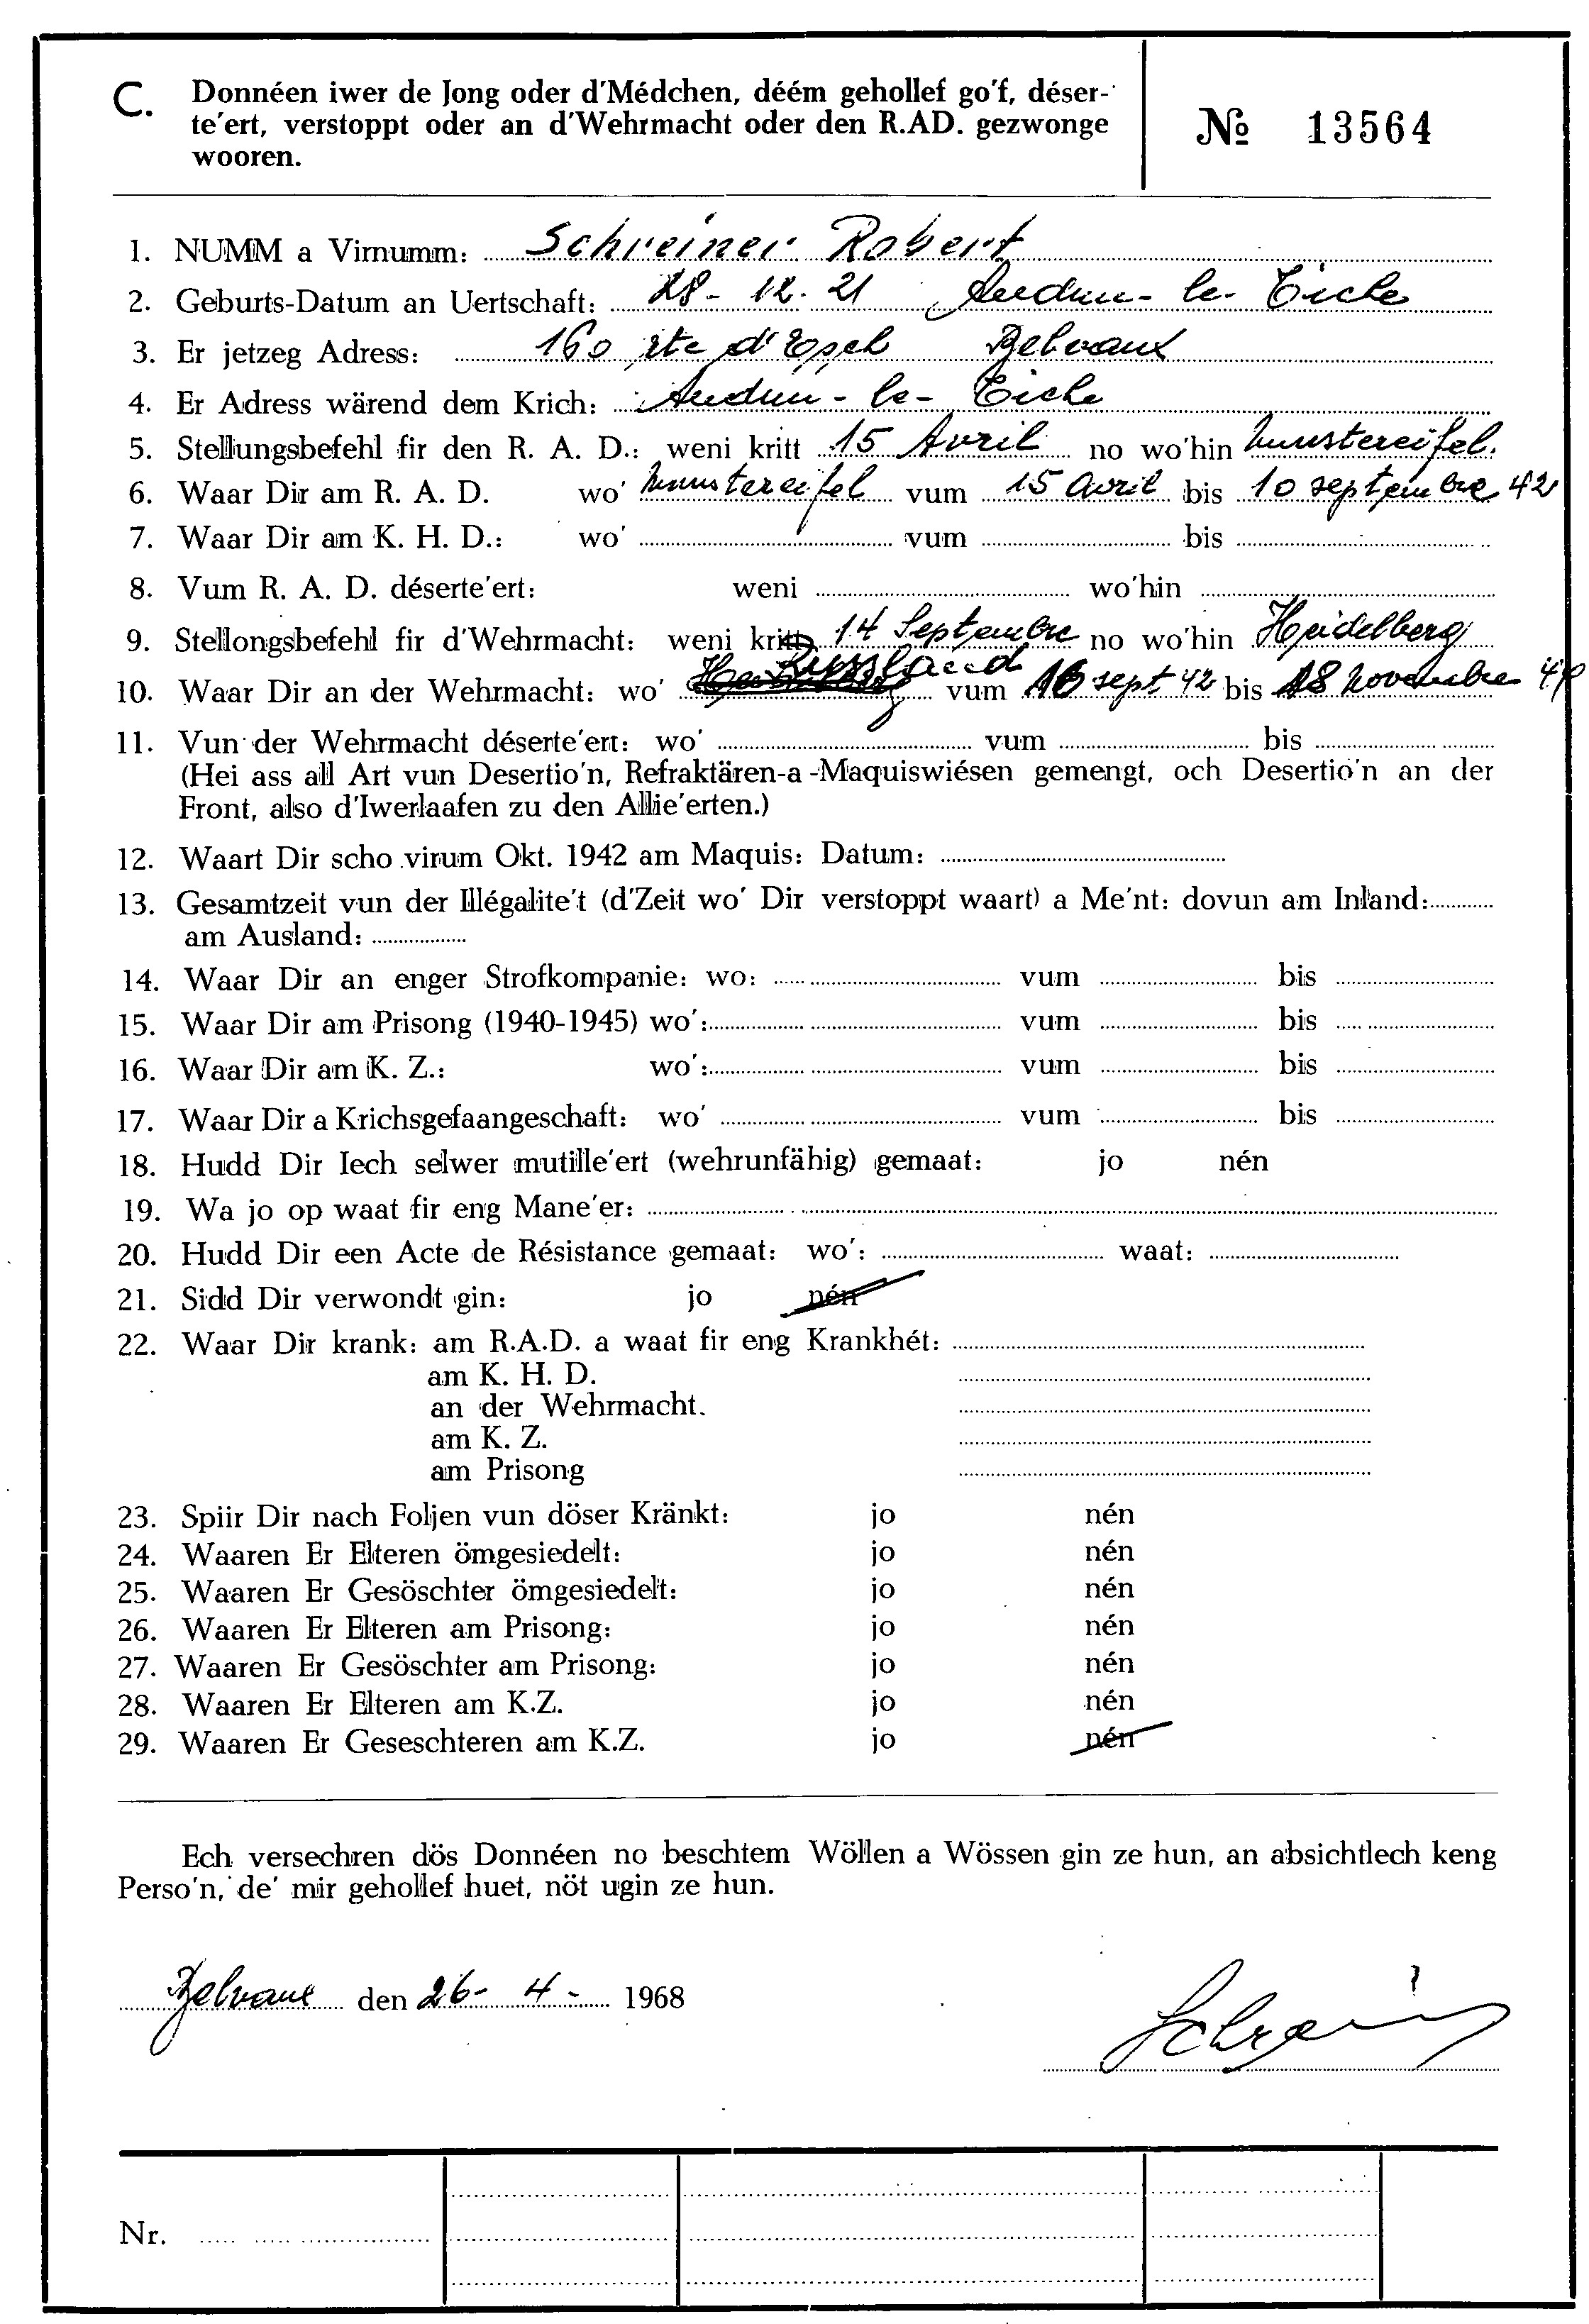 C. Donnéen iwer de Jong oder d'Médchen, déém gehollef go'f, déser-
te'ert, verstoppt oder an d'Wehrmacht oder den R.AD. gezwonge
wooren.
№ 13564
1. NUMM a Virnumm: Schreiner Robert
2. Geburts-Datum an Uertschaft: 28-12.21 Audun-le-Tiche
3. Er jetzeg Adress: 160 rte d'Esch Belvaux
4. Er Adress wärend dem Krich: Audun-le-Tiche
5. Stellungsbefehl fir den R. A. D.: weni kritt 15 Avril no wo'hin Munstereifel.
6. Waar Dir am R. A. D. wo' Munstereifel vum 15 avril bis 10 septembre 42
7. Waar Dir am K. H. D.: wo' vum bis
8. Vum R. A. D. déserte'ert: weni wo'hin
9. Stellongsbefehl fir d'Wehrmacht: weni kritt 14 Septembre no wo'hin Heidelberg
10. Waar Dir an der Wehrmacht: wo' Russland vum 16 sept. 42 bis 18 novembre 44
11. Vun der Wehrmacht déserte'ert: wo' vum bis
(Hei ass all Art vun Desertio'n, Refraktären-a-Maquiswiésen gemengt, och Desertio'n an der
Front, also d'Iwerlaafen zu den Allie'erten.)
12. Waart Dir scho virum Okt. 1942 am Maquis: Datum:
13. Gesamtzeit vun der Illégalite't (d'Zeit wo' Dir verstoppt waart) a Me'nt: dovun am Inland:
am Ausland:
14. Waar Dir an enger Strofkompanie: wo: vum bis
15. Waar Dir am Prisong (1940-1945) wo': vum bis
16. Waar Dir am K. Z.: wo': vum bis
17. Waar Dir a Krichsgefaangeschaft: wo' vum bis
18. Hudd Dir Iech selwer mutille'ert (wehrunfähig) gemaat: jo nén
19. Wa jo op waat fir eng Mane'er:
20. Hudd Dir een Acte de Résistance gemaat: wo': waat:
21. Sidd Dir verwondt gin: jo nén
22. Waar Dir krank: am R.A.D. a waat fir eng Krankhét:
am K. H. D.
an der Wehrmacht.
am K. Z.
am Prisong
23. Spiir Dir nach Foljen vun döser Kränkt: jo nén
24. Waaren Er Elteren ömgesiedelt: jo nén
25. Waaren Er Gesöschter ömgesiedelt: jo nén
26. Waaren Er Elteren am Prisong: jo nén
27. Waaren Er Gesöschter am Prisong: jo nén
28. Waaren Er Elteren am K.Z. jo nén
29. Waaren Er Geseschteren am K.Z. jo nén
Ech versechren dös Donnéen no beschtem Wöllen a Wössen gin ze hun, an absichtlech keng
Perso'n, de' mir gehollef huet, nöt ugin ze hun.
Belvaux den 26-4-1968
Schreiner
Nr.